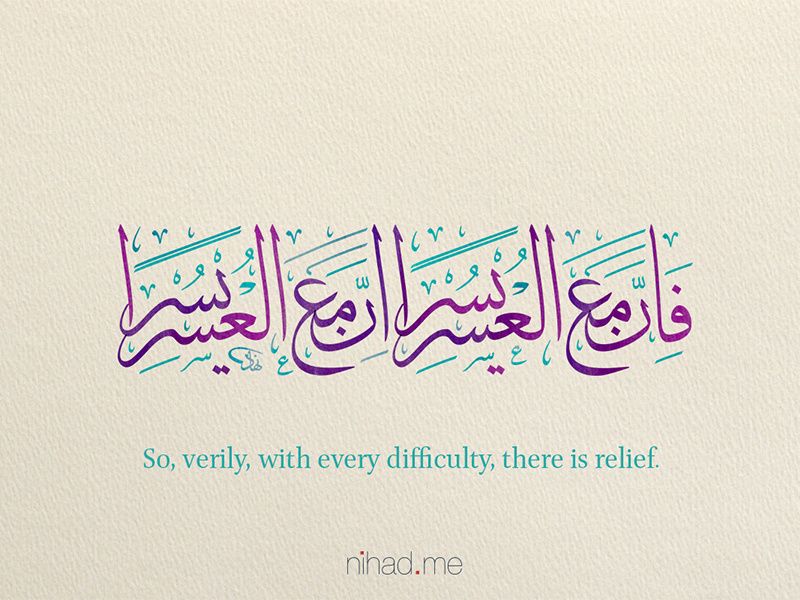 فَإِنَّ مَعَ الْعُسْرِ يُسْرًا إِنَّ مَعَ الْعُسْرِ يُسْرًا
So, verily, with every difficulty, there is relief.
nihad.me